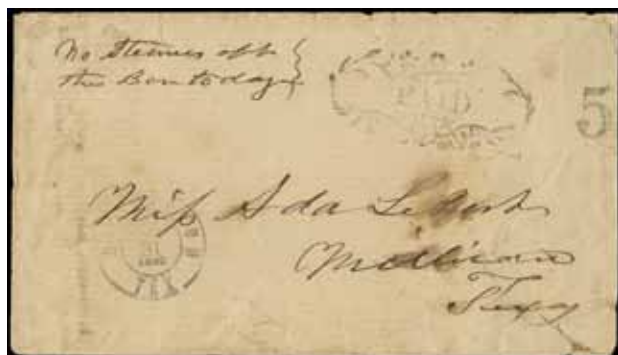 No Steamers off
the Bar to day
PAID
5
Miss Ada Le
Millican
Texas
TEX